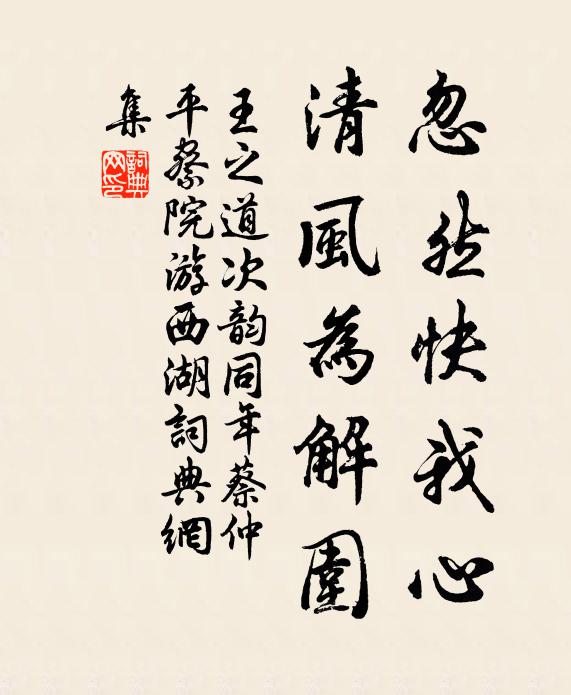 忽然快我心
清風為解圍
王之道次韵同年蔡仲
平察院游西湖詞典網
集
詞典
网印